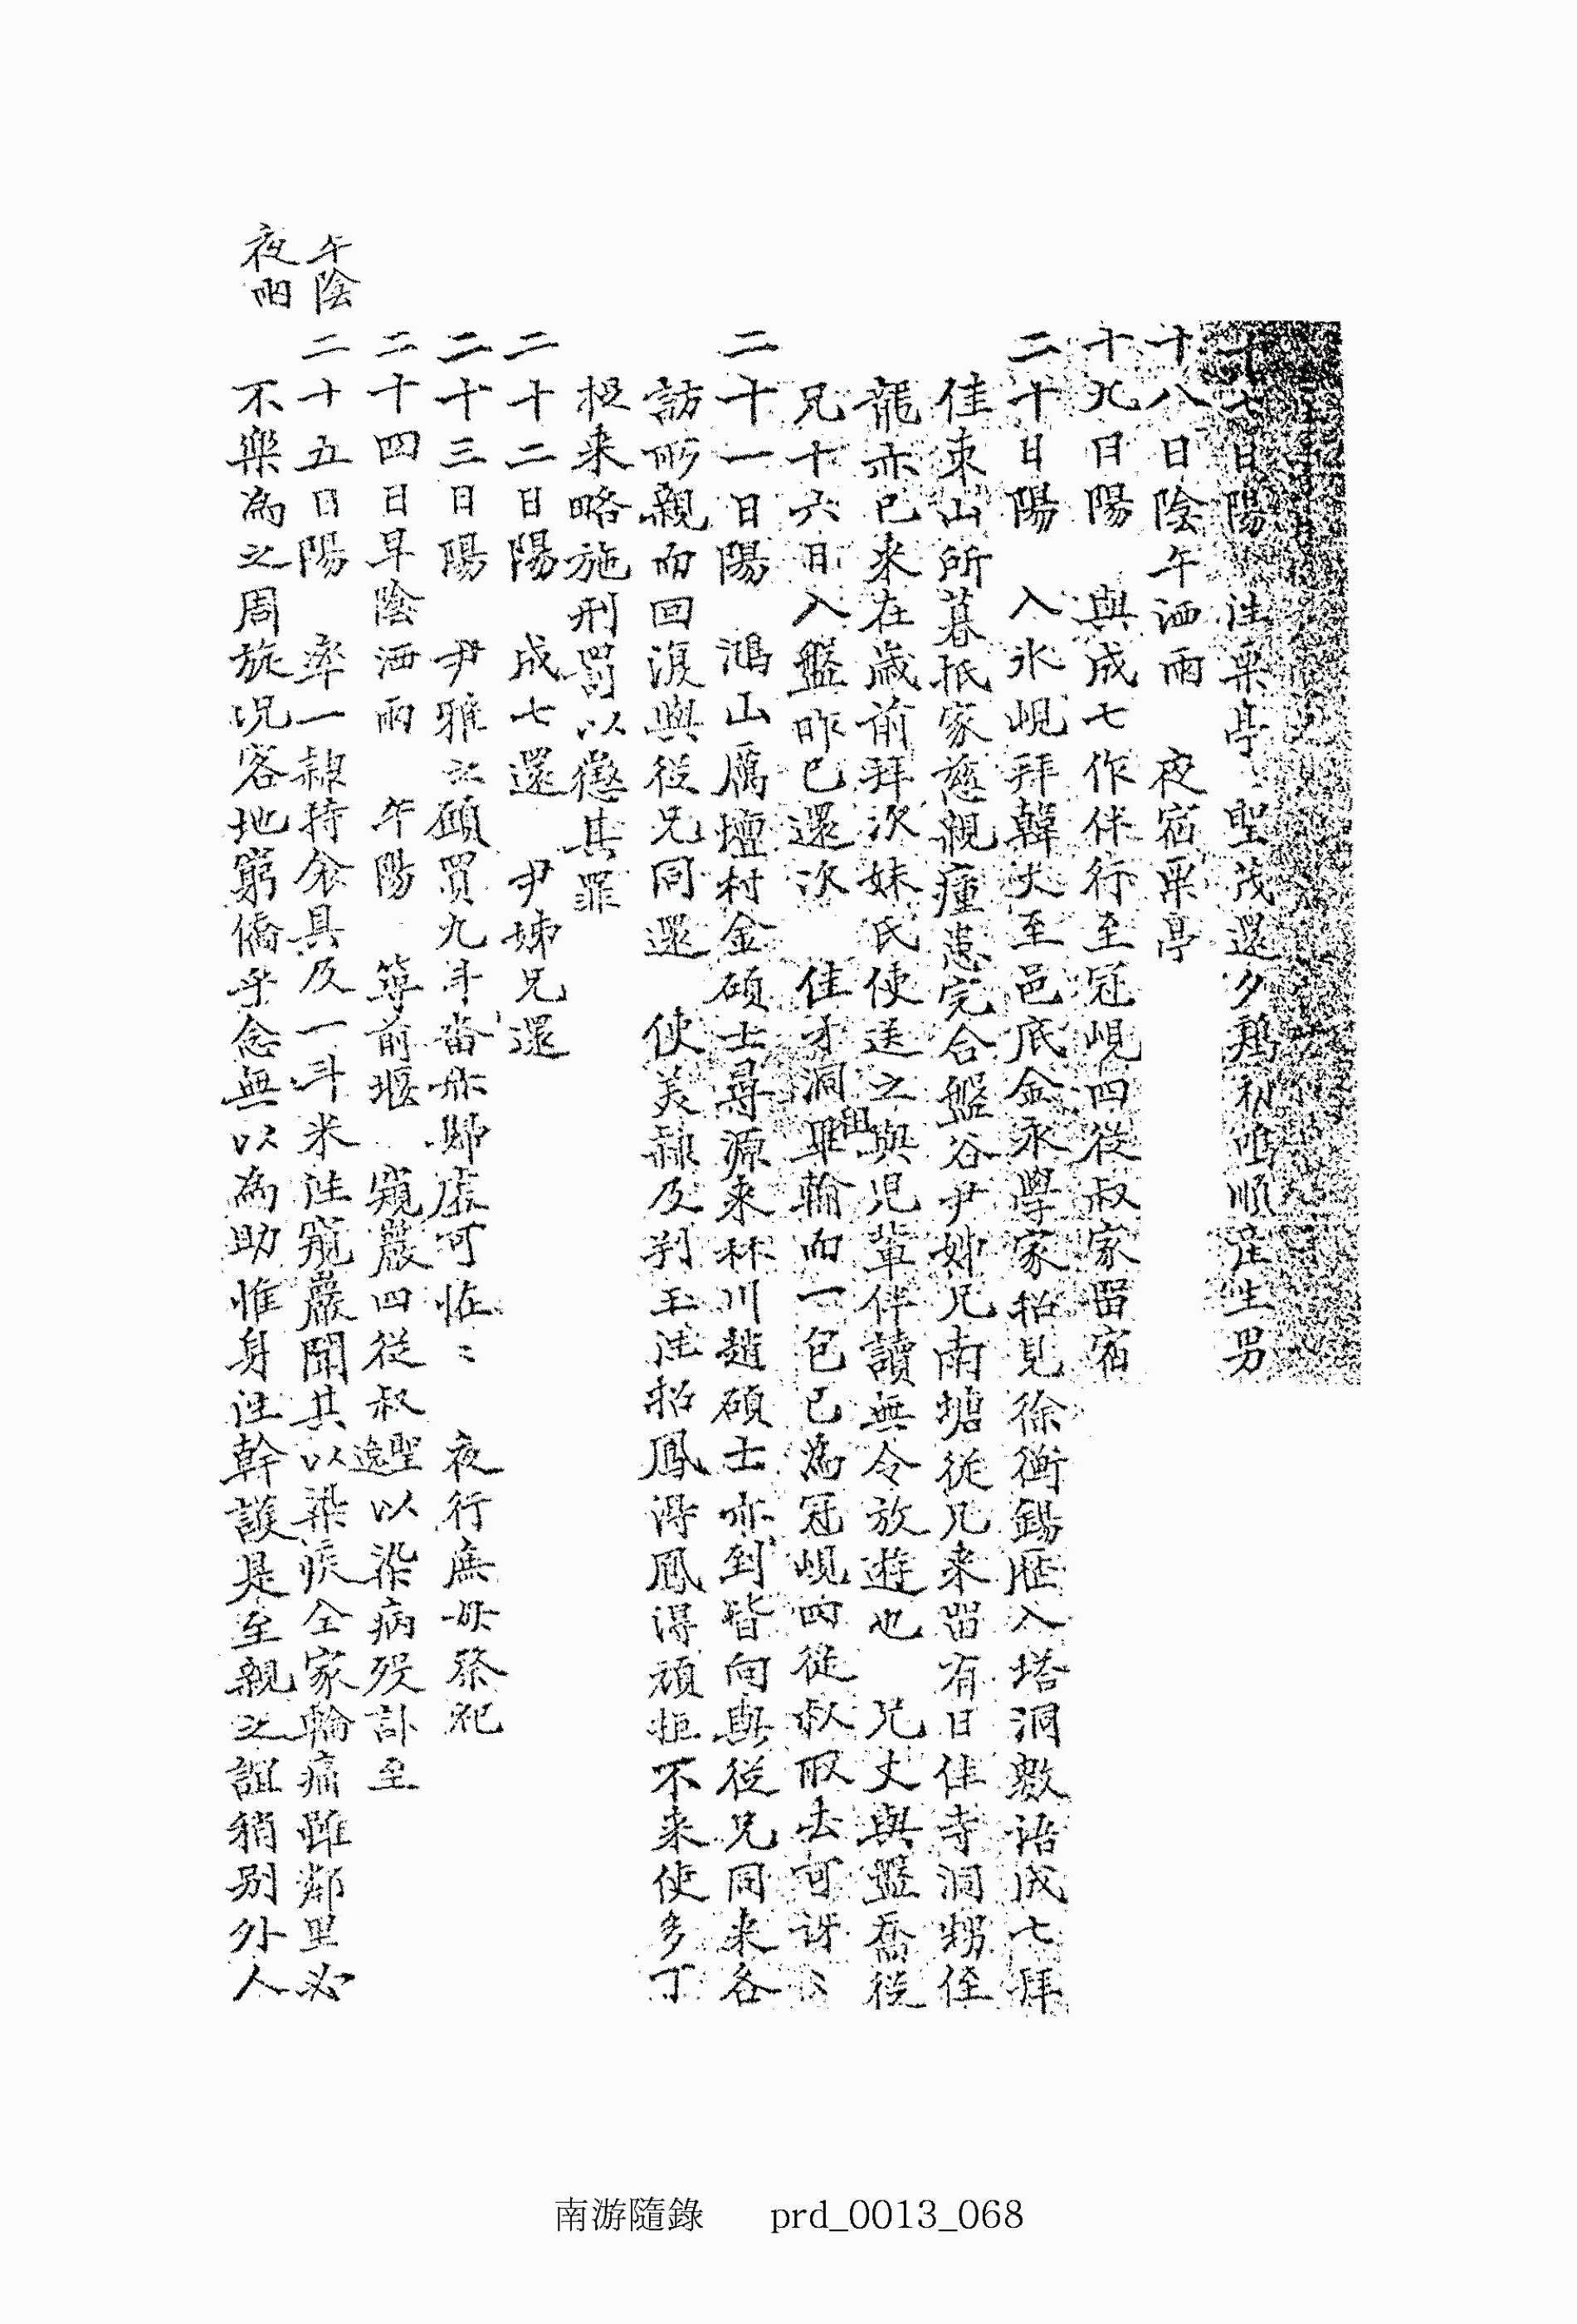 十七日陽 往栗亭 聖茂還夕鷄初鳴順産生男
十八日陰午洒雨 夜宿栗亭
十九日陽 與成七作伴行至冠峴四從叔家留宿
二十日陽 入氷峴拜韓丈至邑底金永學家招見徐衡錫歷入塔洞敷話成七拜
佳束山所暮抵家慈親瘇患完合盤谷尹姊兄南塘從兄來留有日佳寺洞甥侄
龍亦已來在歲前拜次妹氏使送之與兒輩伴讀無令放遊也 兄丈與盤喬從
兄十六日入盤昨已還次 佳才洞租畢輸而一包已爲冠峴四從叔取去可訝〻
二十一日陽 鴻山厲壇村金碩士尋源來林川趙碩士亦到皆向與從兄同來各
訪所親而回淚與從兄同還 使美隷及判玉往招鳳得鳳得頑拒不來使多丁
捉來略施刑罰以懲其罪
二十二日陽 成七還 尹姊兄還
二十三日陽 尹雅之顧買九斗畓亦歸虛可恠〻 夜行庶母祭祀
二十四日早陰洒雨 午陽 築前堰 窺巖四從叔聖逸以染病歿訃至
午陰
夜雨
二十五日陽 率一隷持衾具及一斗米往窺巖聞其以染疾全家輪痛雖鄰里必
不樂爲之周旅况客地窮僑乎念無以爲助惟身往幹護是至親之誼稍別外人
南游隨錄 prd_0013_068